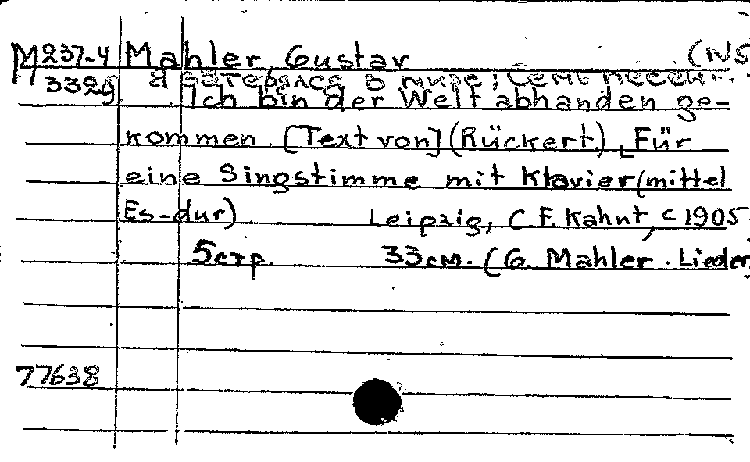 M 237-4 Mahler, Gustav (NS
3329 Я затерялся в мире; Семь песен.
Ich bin der Welt abhanden ge-
kommen. [Text von] (Rückert). Für
eine Singstimme mit Klavier (mittel
Es-dur) Leipzig, C. F. Kahnt, c 1905
5 стр. 33 см. (G. Mahler. Lieder
77638